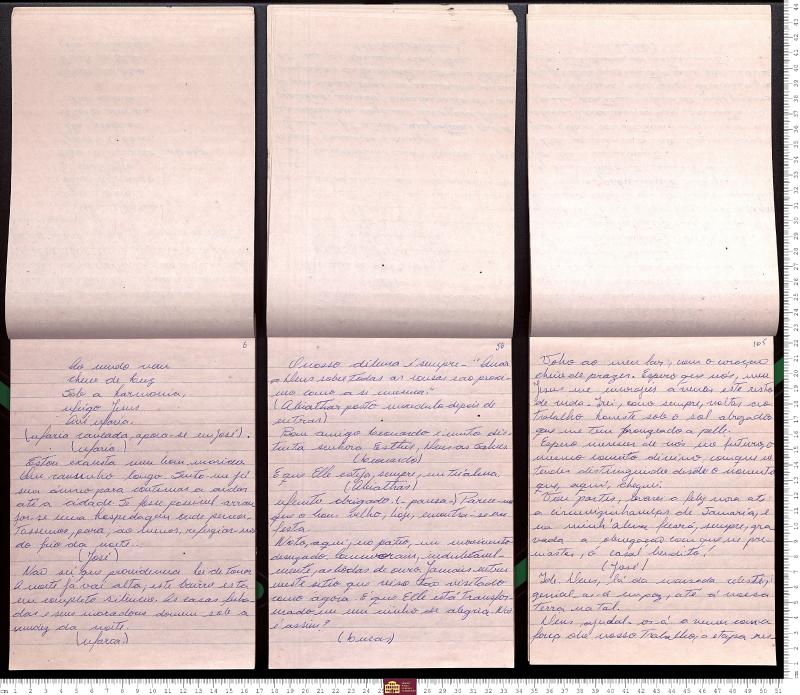 6
Ao mundo vem
cheio de luz
Sob a harmonia,
Meigo Jesus
Avé Maria.
(Maria cansada, apoia-se em José).
(Maria)
Estou exausta meu bom marido
caminho longo. Sinto-me já
sem animo para continuar a andar
até a cidade. Se fosse possivel arran
jar-se uma hospedagem onde pernoi
tassemos, para, ao menos, refugiar-nos
do frio da noite...
(José)
Não sei que providencia hei de tomar
A noite já vai alta, este bairro está
em completo silencio. As casas fecha
das e seus moradores dormem sob a
mudez da noite.
(Maria)
50
O nosso dilema é sempre - "Amar
a Deus sobre todas as cousas e ao proxi-
mo como a si mesmo."
(Abiathar posto
entrar)
Bom amigo Leonardo e muito dis-
tinta senhora Esther, Deus os salve
(Leonardo)
E que Elle esteja, sempre, em tua alma.
(Abiathar)
Muito obrigado. (-pausa-) Parece-me
que o bom velho, hoje, encontra-se em
festa.
Noto, aqui, no pateo, um movimento
desusado. Comemoram, indubitavel-
mente, as bodas de ouro. Jamais entrei
neste sitio que visse tão
como agora. É que Elle está transfor-
mado em um ninho de alegria. Não
é assim?
(Lucas)
108
Volto ao meu lar, com o coração
cheio de prazer. Espero que vós, meu
Jesus me
de vida. Irei, como sempre, voltar ao
trabalho honesto sob o sol abrazador
que me tem a pelle.
Espero merecer de vós, no futuro, o
mesmo conceito divino com que me
tendes distinguido desde o momento
que, aqui, cheguei.
Vou partir, levar o feliz nova até
a circumvizinhanças de Samaria, e
na minh'alma ficará, sempre, gra
vada a obrigação com que me pre-
miastes, ó casal bendito!
(José)
Ide. Deus, lá da mansada celestial
em paz, até á vossa
terra natal.
Deus ajudal-os-á a vencer com a
força do vosso trabalho, a etapa